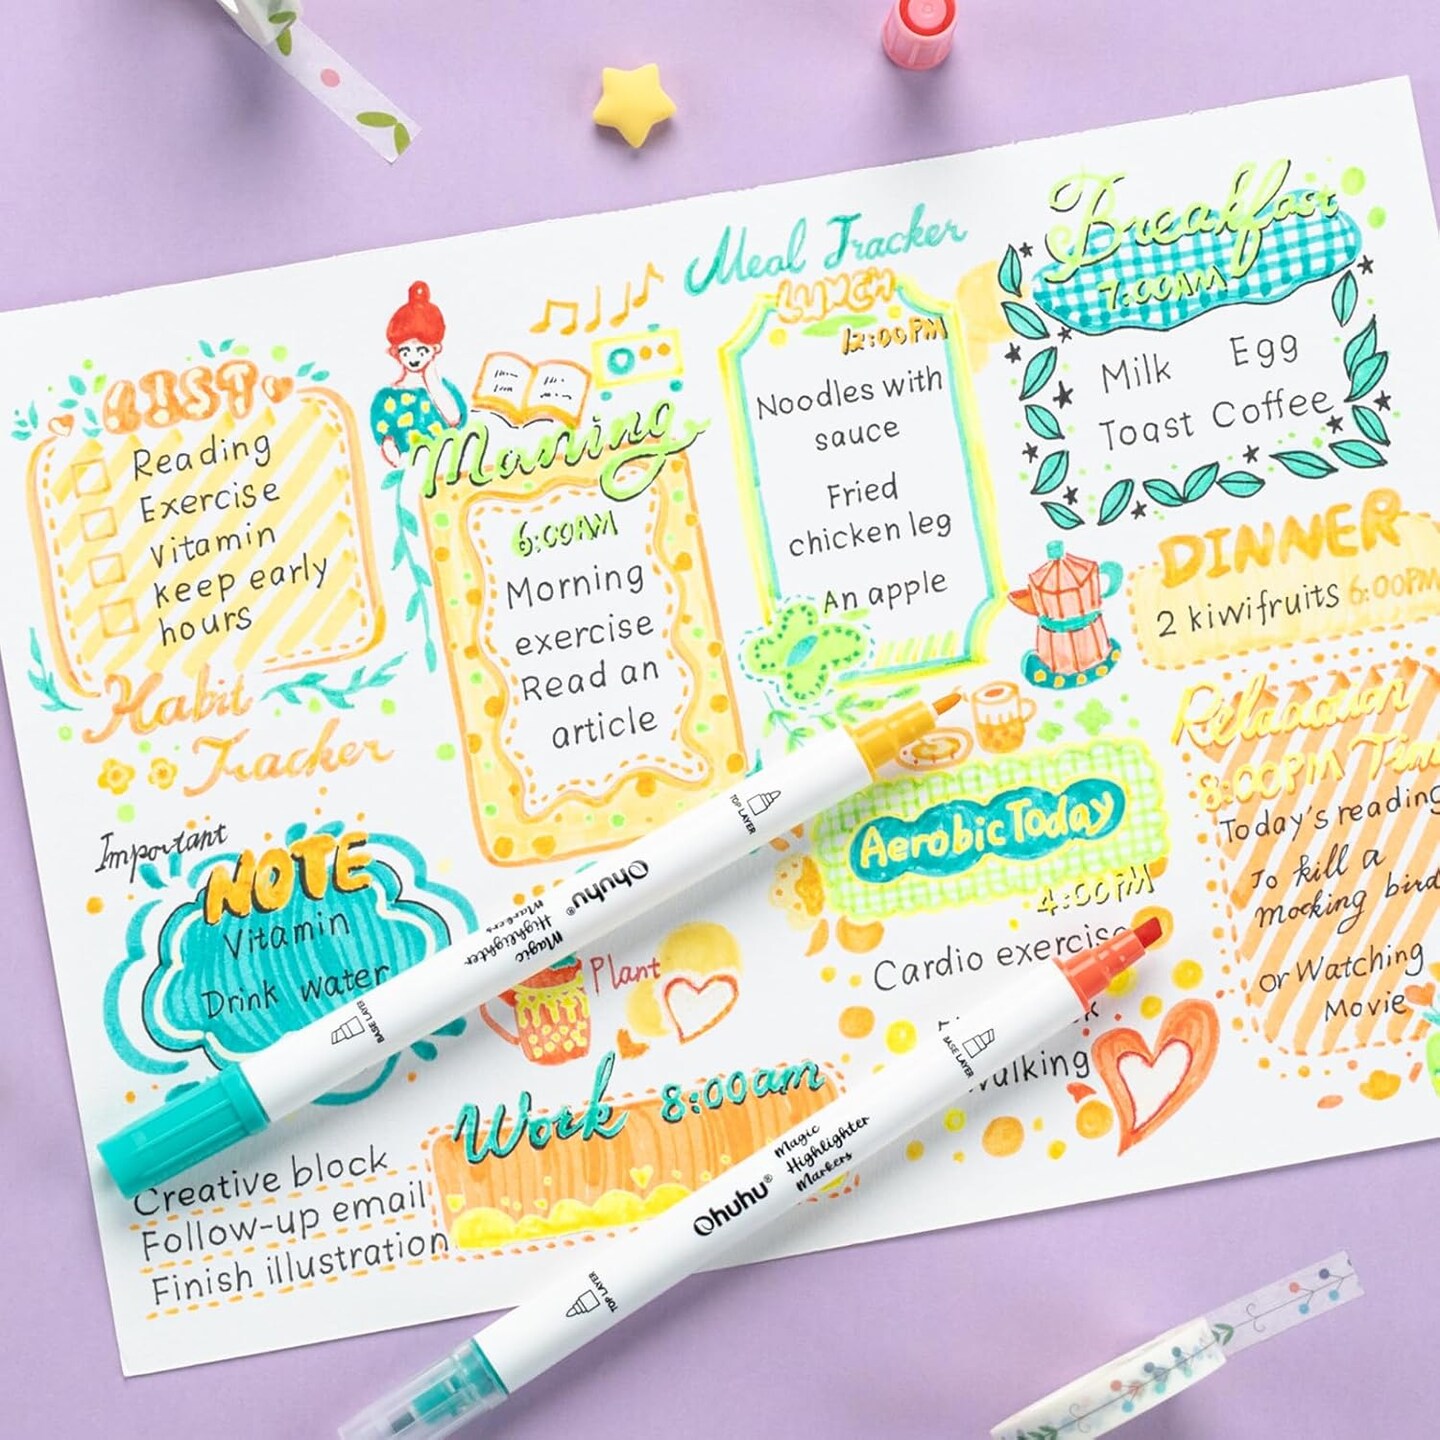 Meal Tracker
Breakfast
7:00AM
Milk Egg
Toast Coffee
LUNCH
12:00PM
Noodles with
sauce
Fried
chicken leg
An apple
DINNER
2 kiwifruits 6:00PM
LIST
Reading
Exercise
Vitamin
keep early
hours
Habit
Tracker
Morning
6:00AM
Morning
exercise
Read an
article
Important
NOTE
Vitamin
Drink water
Plant
Aerobic Today
4:00PM
Cardio exercise
Walking
Relaxation
8:00PM Time
Today's reading
To kill a
mocking bird
or Watching
Movie
Work 8:00am
Creative block
Follow-up email
Finish illustration
TOP LAYER
Ohuhu®
Magic
Highlighter
Markers
BASE LAYER
BASE LAYER
Magic
Highlighter
Markers
Ohuhu®
TOP LAYER